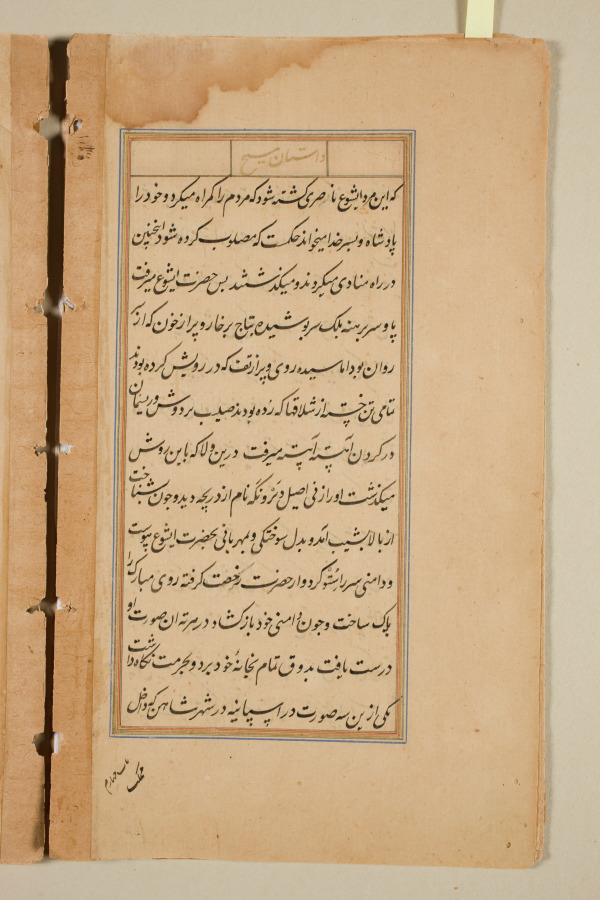 داستان مسیح
که این مرد ایشوع ناصری کشته شود که مردم را کمراه میکرد و خود را
پادشاه و پسر خدا میخواند حکمست که مصلوب کرده شود اینچنین
در راه منادی میکردند و میکذشتند پس حضرت ایشوع میرفت
پا و سر برهنه بلک سر پوشیده بتاج پرخار و پر از خون که از
روان بود اما سیده روی و پر از تف که در رویش کرده بودند
تمامی تن خسته از شلاقها که زده بودند صلیب بر دوش و ریسمان
در کردن آهسته آهسته میرفت درین ولا که باین روش
میکذشت او را زنی اصیل نام از دریچه دید و چون شناخت
از بالا بشیب آمد و بدل سوختکی و مهربانی بحضرت ایشوع پیوست
و دامنی سر را کرد و از حضرت رخصت کرفته روی مبارک را
پاک ساخت و چون دامنی خود باز کشاد در مرتبه آن صورت او
درست یافت بذوق تمام بخانهٔ خود برد و بحرمت نکاه داشت
یکی ازین سه صورت در اسپانیه در شهر شاهن که داخل
ملک